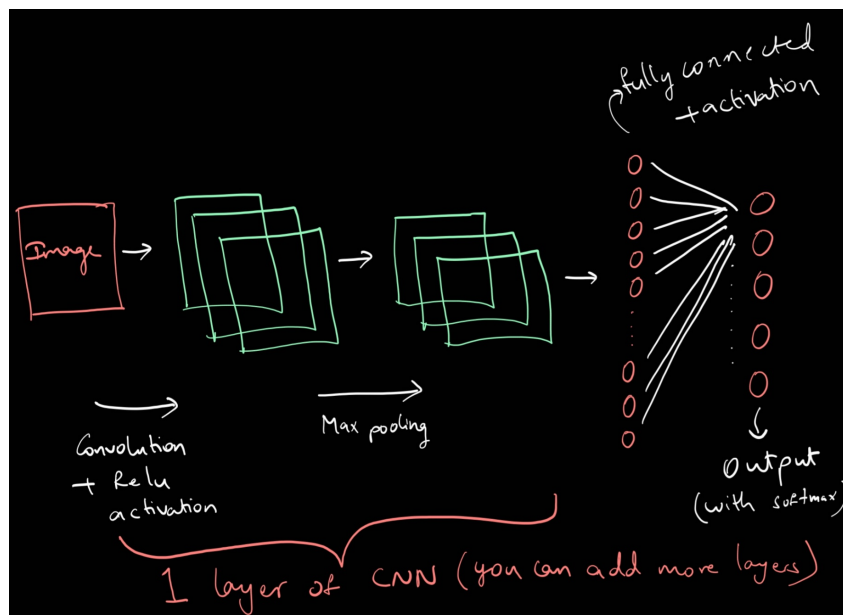 fully connected
+activation
Image
Convolution
+ Relu
activation
Max pooling
Output
(with softmax)
1 layer of CNN (you can add more layers)